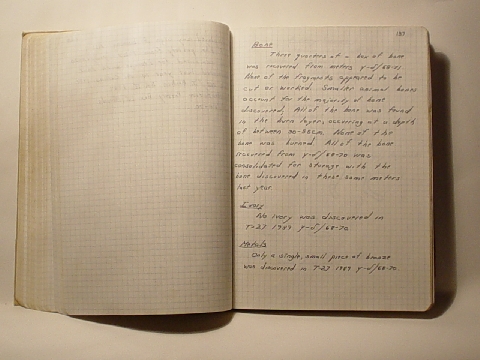 137
Bone
Three quarters of a box of bone
was recovered from meters Y-5/68-71
None of the fragments appeared to be
cut or worked. Smaller animal bones
account for the majority of bone
discovered. All of the bone was found
in the burn layer, occurring at a depth
of between 30-55cm. None of the
bone was burned. All of the bone
recovered from Y-5/68-70 was
consolidated for storage with the
bone discovered in these same meters
last year.
Ivory
No ivory was discovered in
T-27 1989 Y-5/68-70
Metals
Only a single, small piece of bronze
was discovered in T-27 1989 Y-5/68-70